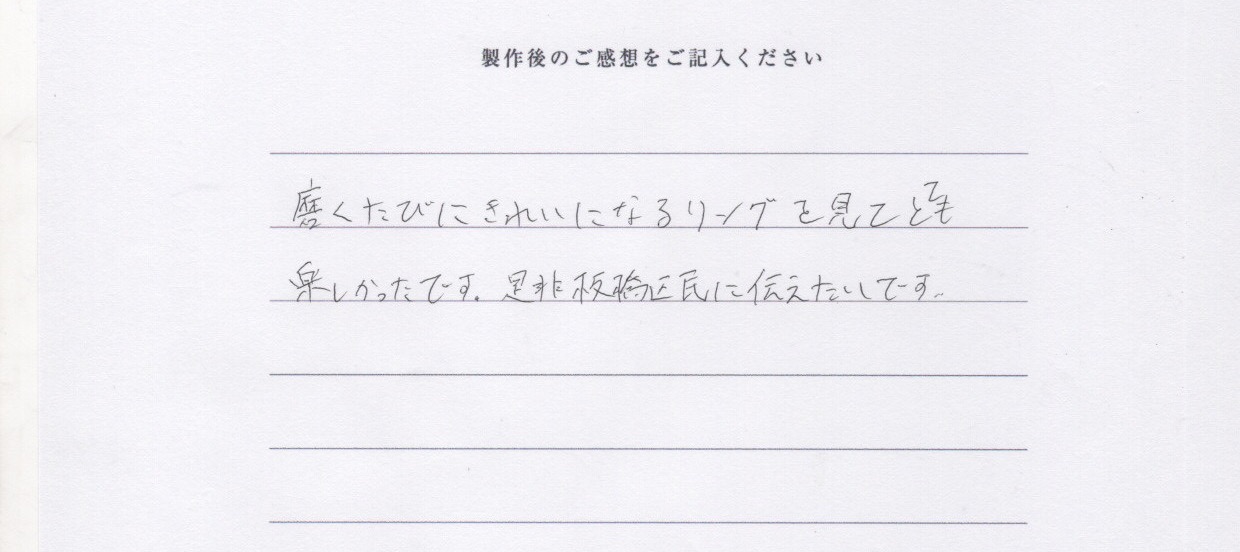 製作後のご感想をご記入ください
磨くたびにきれいになるリングを見てとても
楽しかったです。是非板橋区民に伝えたいです。